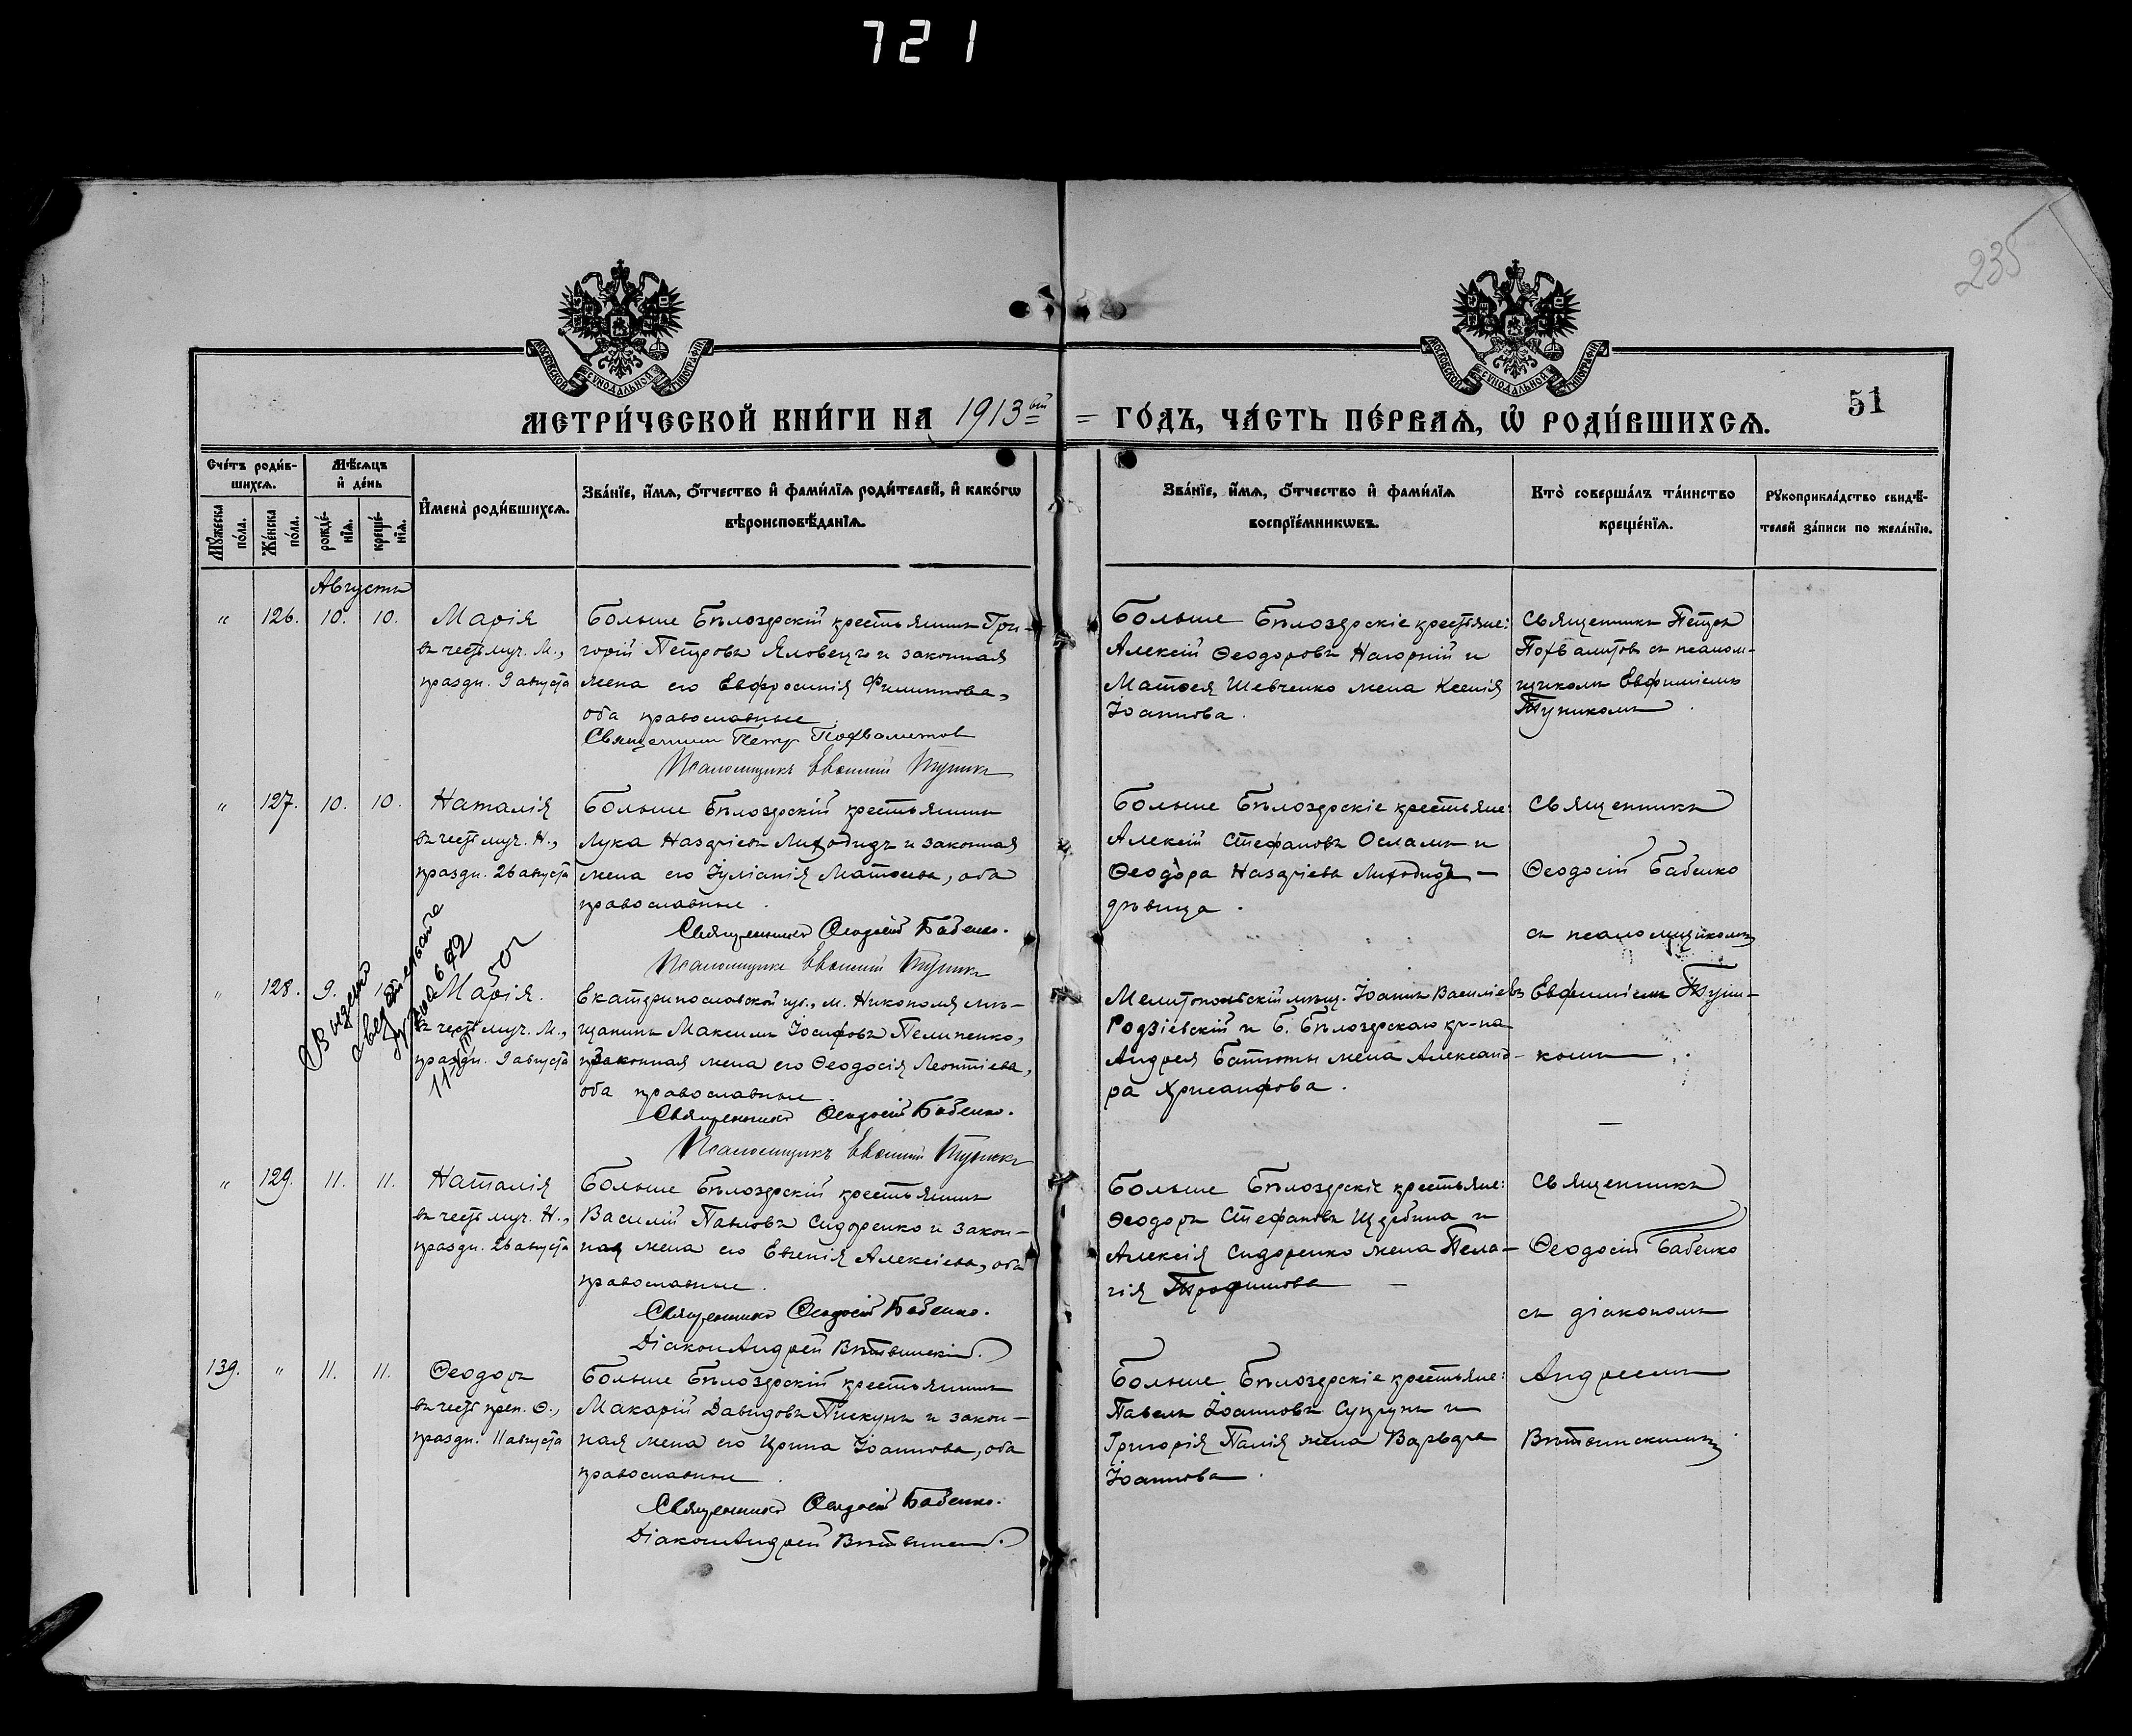 721
235
МОСКОВСКОЙ СѴНОДАЛЬНОЙ ТИПОГРАФІИ
МОСКОВСКОЙ СѴНОДАЛЬНОЙ ТИПОГРАФІИ
МЕТРИ́ЧЕСКОЙ КНИ́ГИ НА 1913ый = ГО́ДЪ, ЧА́СТЬ ПЕ́РВАѦ, Ѡ҆ РОДИ́ВШИХСѦ.
51
Сче́тъ роди́в-
шихсѧ.
Мѣ́сѧцъ
и҆ де́нь
Мꙋ́жеска по́ла.
Же́нска по́ла.
рожде́-
нїѧ.
креще́-
нїѧ.
И҆мена̀ роди́вшихсѧ.
Зва́нїе, и҆́мѧ, ѻ҆́тчество и҆ фами́лїѧ роди́телей, и҆ како́гѡ
вѣроисповѣ́данїѧ.
Зва́нїе, и҆́мѧ, ѻ҆́тчество и҆ фами́лїѧ
воспрїе́мникѡвъ.
Кто̀ соверша́лъ та́инство
креще́нїѧ.
Рꙋкоприкла́дство свидѣ́-
телей за́писи по жела́нїю.
Августъ
" 126. 10. 10.
Марія
въ честь муч. М.,
праздн. 9 августа
Больше Бѣлозерскій крестьянинъ Гри-
горій Петровъ Яловецъ и законная
жена его Евфросинія Филиппова,
оба православные
Священник Петр Похвалитов
Псаломщикъ Евѳимій Тупикъ
Больше Бѣлозерскіе крестьяне:
Алексій Ѳеодоровъ Нагорній и
Матѳея Шевченко жена Ксенія
Іоаннова.
Священникъ Петръ
Похвалитовъ съ псалом-
щикомъ Евфиміемъ
Тупикомъ.
" 127. 10. 10.
Наталія
въ честь муч. Н.,
праздн. 26 августа
Больше Бѣлозерскій крестьянинъ
Лука Назаріевъ Лиходидъ и законная
жена его Іуліанія Матѳеева, оба
православные.
Священникъ Ѳеодосій Бабенко.
Псаломщикъ Евѳимій Тупикъ
Больше Бѣлозерскіе крестьяне:
Алексій Стефановъ Осламъ и
Ѳеодора Назаріева Лиходидъ —
дѣвица.
Священникъ
Ѳеодосій Бабенко
съ псаломщикомъ
" 128. 9. 1
Марія.
въ честь муч. М.,
праздн. 9 августа
Выдано
Екатеринославской губ., м. Никополя мѣ-
щанинъ Максимъ Іосифовъ Пелипенко,
и законная жена его Ѳеодосія Леонтіева,
оба православные.
Священникъ Ѳеодосій Бабенко.
Псаломщикъ Евѳимій Тупикъ
Мелитопольскій мѣщ. Іоаннъ Василіевъ
Родзіевскій и Б. Бѣлозерскаго кр-на
Андрея Батюты жена Александ-
ра Хрисанфова.
Евфиміемъ Тупи-
комъ.
" 129. 11. 11.
Наталія
въ честь муч. Н.,
праздн. 26 августа
Больше Бѣлозерскій крестьянинъ
Василій Павловъ Сидоренко и закон-
ная жена его Евгенія Алексіева, оба
православные.
Священникъ Ѳеодосій Бабенко.
Діаконъ Андрей Вѣтвинскій.
Больше Бѣлозерскіе крестьяне:
Ѳеодоръ Стефановъ Щербина и
Алексія Сидоренко жена Пела-
гія Трофимова —
Священникъ
Ѳеодосій Бабенко
съ діакономъ
139. " 11. 11.
Ѳеодоръ
въ честь преп. Ѳ.,
праздн. 11 августа
Больше Бѣлозерскій крестьянинъ
Макарій Давидовъ Пискунъ и закон-
ная жена его Ирина Іоаннова, оба
православные.
Священникъ Ѳеодосій Бабенко.
Діаконъ Андрей Вѣтвинскій.
Больше Бѣлозерскіе крестьяне:
Павелъ Іоанновъ Супрунъ и
Григорія Палія жена Варвара
Іоаннова.
Андреемъ
Вѣтвинскимъ